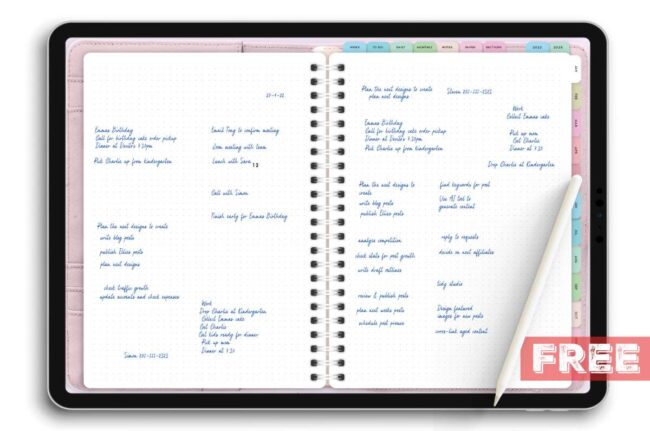 TO DO
DAILY
MONTHLY
NOTES
PAPER
SECTIONS
Emmas Birthday
Call for birthday cake order pickup
Dinner at 7:30pm
Pick Charlie up from Kindergarten
Plan the next designs to create
write blog posts
publish Ellies posts
plan next designs
check traffic growth
update accounts and check expenses
Simon
Email Tony to confirm meeting
Zoom meeting with team
Lunch with Sara
13
Call with Simon
Finish early for Emmas Birthday
Work
Drop Charlie at Kindergarten
Collect Emmas cake
Get Charlie
Get kids ready for dinner
Pick up mom
Dinner at 7:30
Plan the next designs to create
plan next designs
Simon
Work
Collect Emmas cake
Emmas Birthday
Call for birthday cake order pickup
Dinner at 7:30pm
Pick Charlie up from Kindergarten
Pick up mom
Get Charlie
Dinner at 7:30
Drop Charlie at Kindergarten
Plan the next designs to
create
write blog posts
publish Ellies posts
find keywords for post
Use AI tool to
generate content
analyse competition
check stats for post growth
write draft outlines
reply to requests
decide on next affiliates
tidy studio
review & publish posts
plan next weeks posts
schedule post promos
Design featured
images for new posts
cross-link aged content
FREE